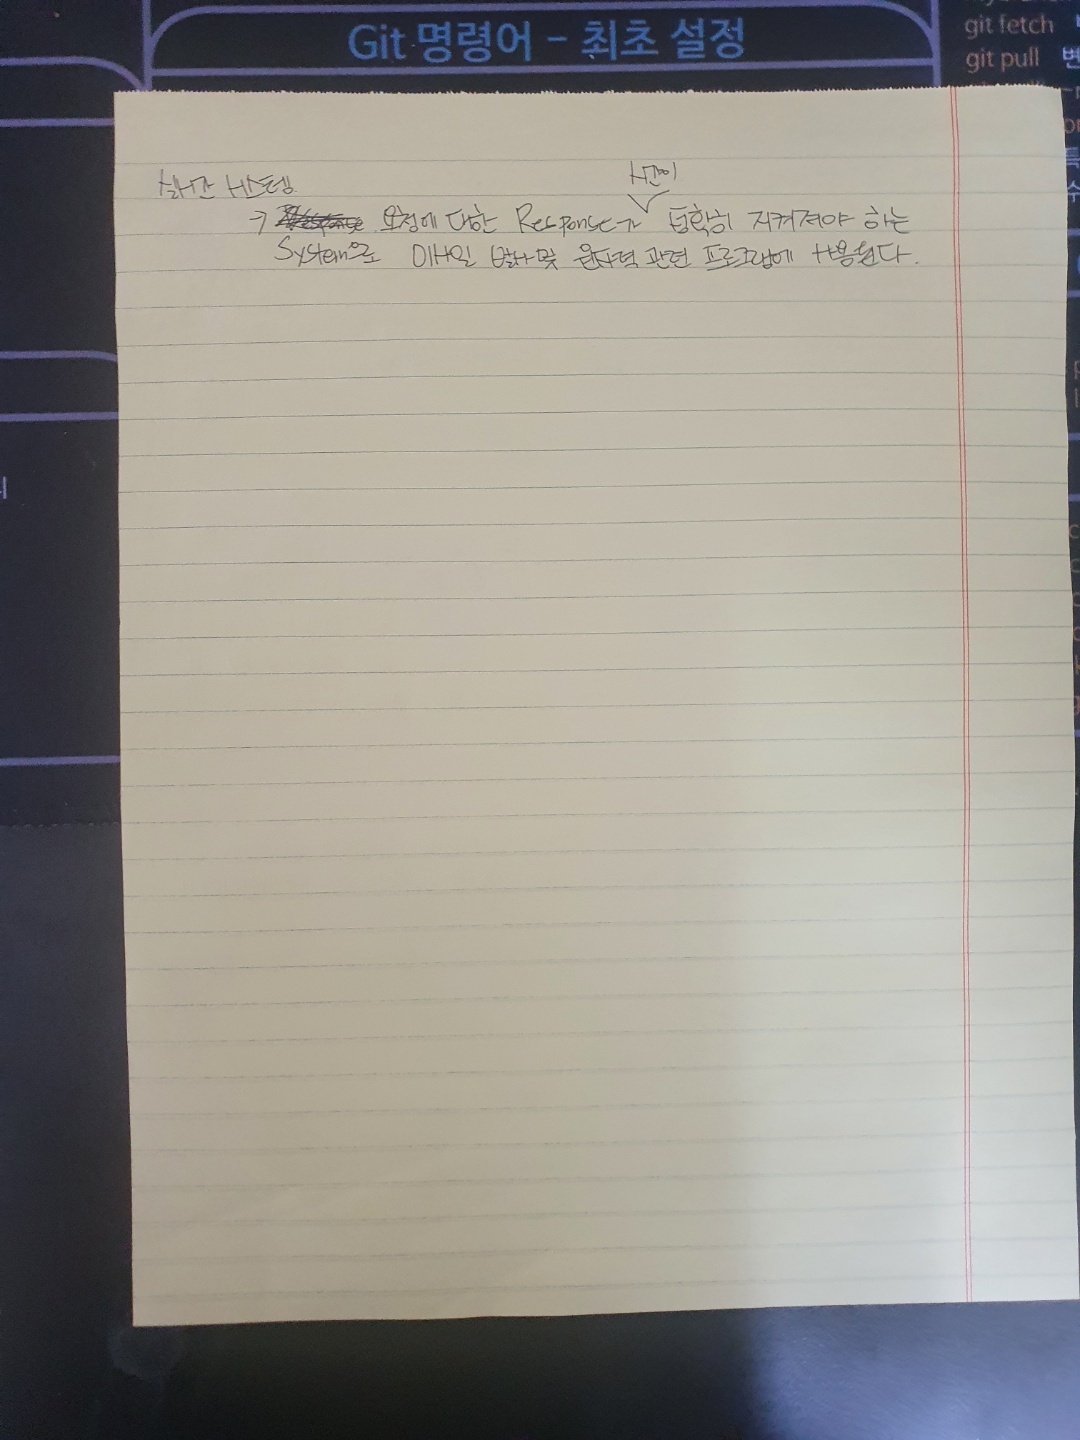 Git 명령어 - 최초 설정
git fetch
git pull 변
실시간 시스템
시간이
→ 요청에 대한 Response가 정확히 지켜져야 하는
System으로 미사일 발사 및 원자력 관련 프로그램에 사용된다.